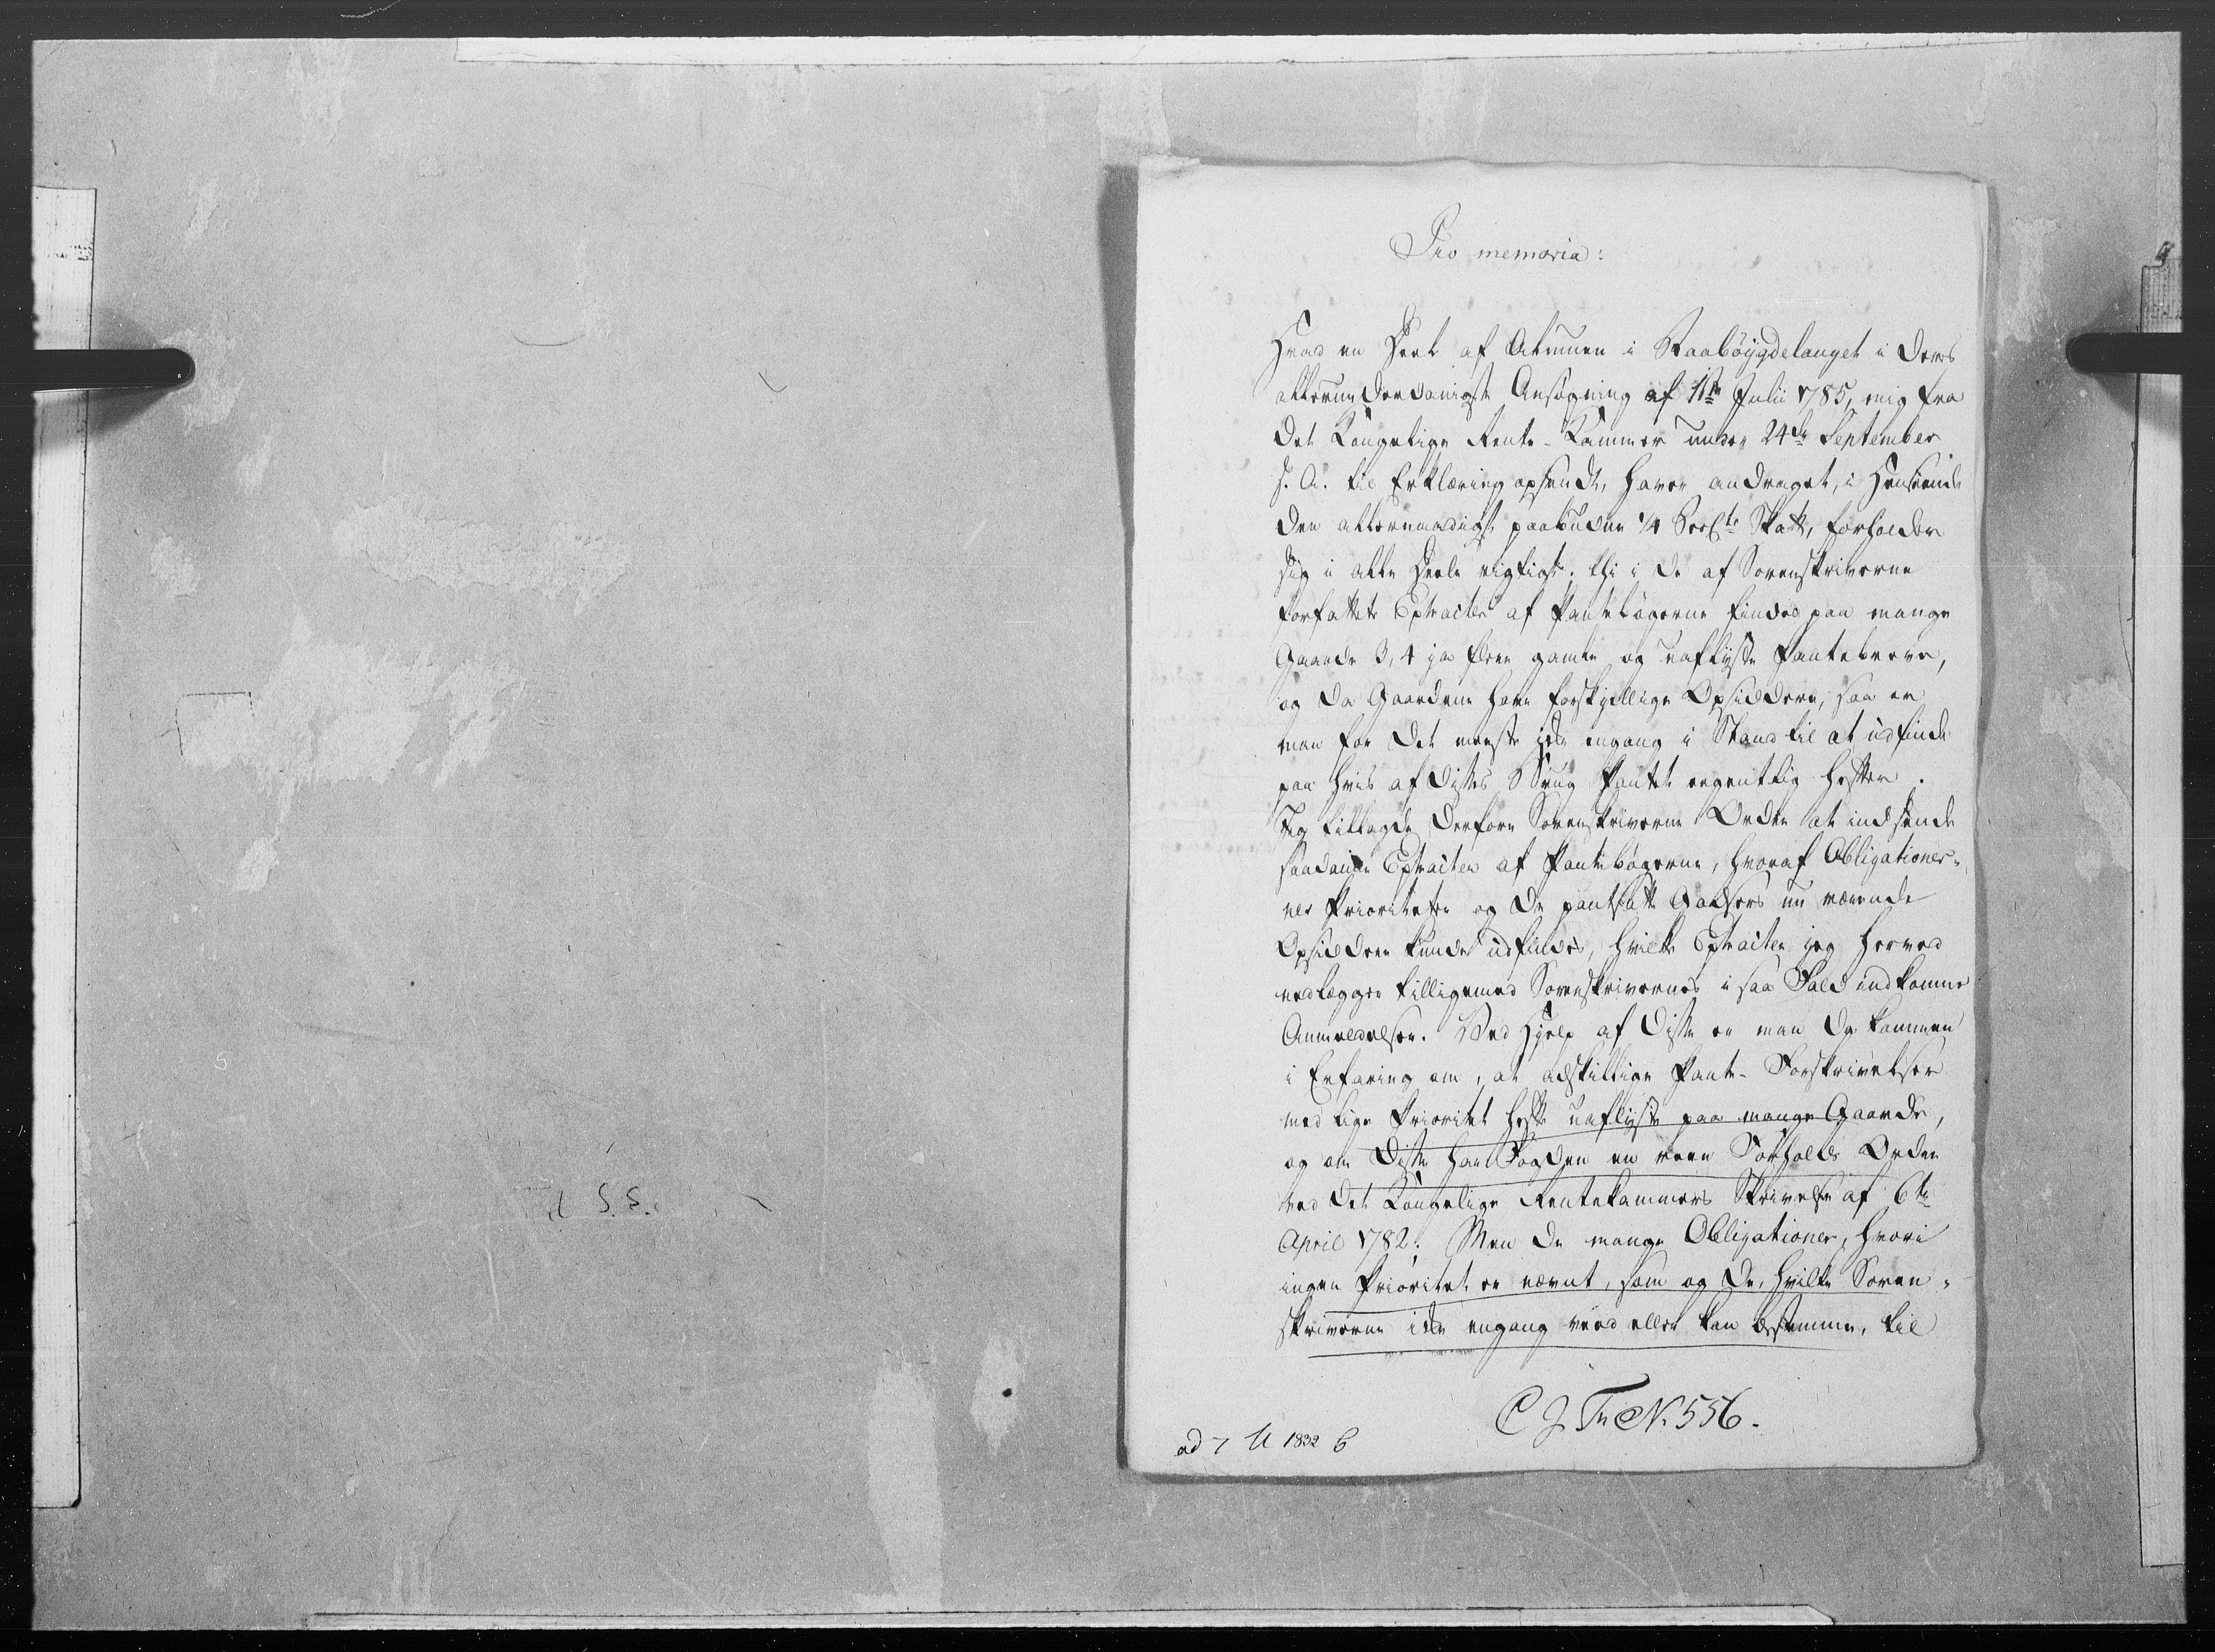 Pro memoria:
Hvad en Deel af Almuen i Raabøygdelauget i deres
allerunderdanigste Ansøgning af 11te Julii 1785, mig fra
det Kongelige Rente-Kammer under 24de September
s. A. til Erklæring opsendt, haver andraget, i Henseende
den allernaadigst paabudne 1/4 Procto Skatt, forholder
sig i alle Deele rigtigt; thi i de af Sorenskriverne
forfattede Extracter af Pantebøgerne findes paa mange
Gaarde 3, 4 ja flere gamle og uaflyste Pantebreve,
og da Gaardene have forskjellige Opsiddere, saa er
man for det meeste ikke engang i Stand til at udfinde
paa hvis af disses Brug Pantet egentlig hefter.
Jeg tillagde derfore Sorenskriverne Ordre at indsende
saadanne Extracter af Pantebøgerne, hvoraf Obligationer-
nes Prioriteter og de pantsatte Godsers nu værende
Opsiddere kunde udfindes, hvilke Extracter jeg herved
vedlægger tilligemed Sorenskrivernes i saa Fald indkomne
Anmeldelser. Ved Hjelp af disse er man da kommen
i Erfaring om, at adskillige Pante-Forskrivelser
med lige Prioritet hefte uaflyste paa mange Gaarde,
og om disse har Fogden en reen Forholds Ordre
ved det Kongelige Rentekammers Skrivelse af 6te
April 1782. Men de mange Obligationer, hvori
ingen Prioritet er nævnt, som og de, hvilke Soren-
skriverne ikke engang veed eller kan bestemme, til
C J Tr No. 556.
ad 7 U 1832 B
S.S.